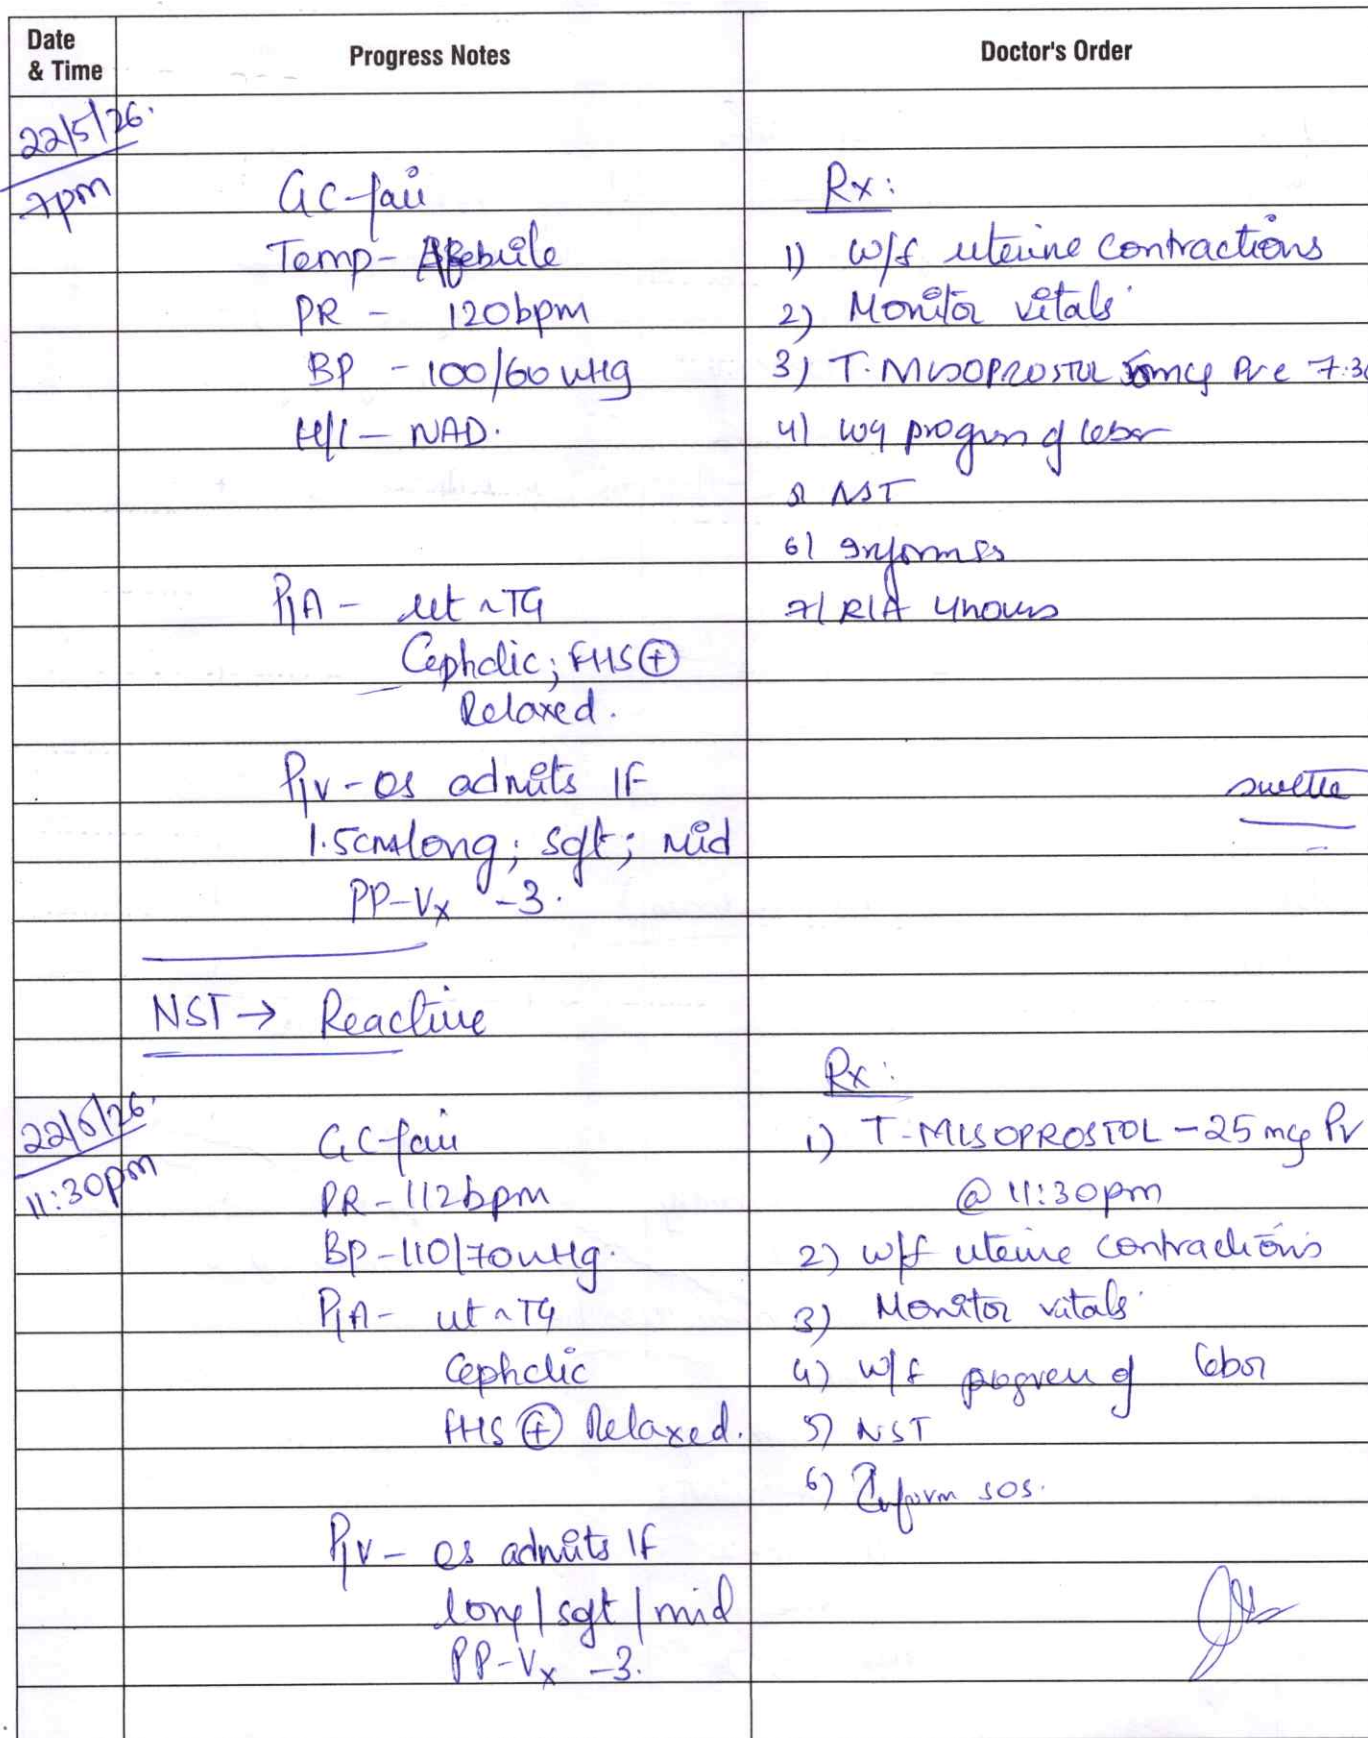 Date & Time
Progress Notes
Doctor's Order
22/5/26.
7pm
GC-fair
Temp- Afebrile
PR - 120bpm
BP - 100/60
H/L - NAD.
P/A - ut ~TG
Cephalic; FHS ⊕
Relaxed.
P/v - os admits 1F
1.5cm long; soft; mid
PP-Vx -3.
NST → Reactive
Rx:
1) w/f uterine contractions
2) Monitor vitals
3) T. MISOPROSTOL mcg 7:30
4) progress of labor
5) NST
6) Inform
7) 4 hours
22/5/26.
11:30pm
GC-fair
PR - 112bpm
BP - 110/70
P/A - ut ~TG
Cephalic
FHS ⊕ Relaxed.
P/v - os admits 1F
long / soft / mid
PP-Vx -3.
Rx:
1) T. MISOPROSTOL - 25 mcg Pv
@ 11:30pm
2) w/f uterine contractions
3) Monitor vitals
4) w/f progress of labor
5) NST
6) Inform sos.